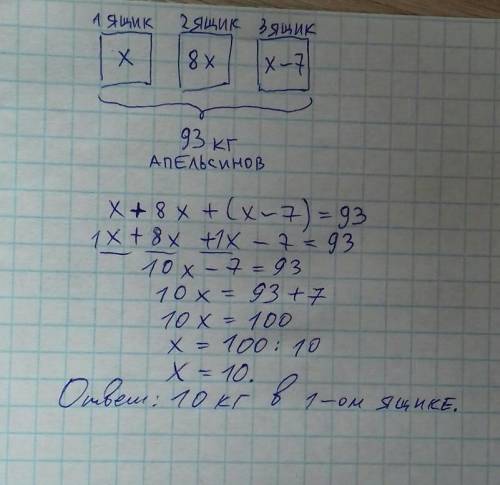 1 ящик 2 ящик 3 ящик
x 8x x-7
93 кг
апельсинов
x + 8x + (x-7) = 93
1x + 8x + 1x - 7 = 93
10x - 7 = 93
10x = 93 + 7
10x = 100
x = 100 : 10
x = 10.
Ответ: 10 кг в 1-ом ящике.